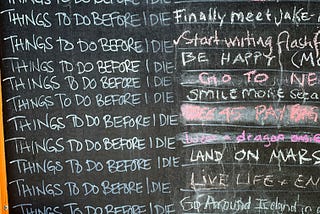 THINGS TO DO BEFORE I DIE Finally meet Jake
THINGS TO DO BEFORE I DIE Start writing flash
THINGS TO DO BEFORE I DIE BE HAPPY
THINGS TO DO BEFORE I DIE GO TO NE
THINGS TO DO BEFORE I DIE SMILE MORE
THINGS TO DO BEFORE I DIE
THINGS TO DO BEFORE I DIE dragon
THINGS TO DO BEFORE I DIE LAND ON MARS
THINGS TO DO BEFORE I DIE LIVE LIFE + EN
THINGS TO DO BEFORE I DIE Go Around Iceland in a